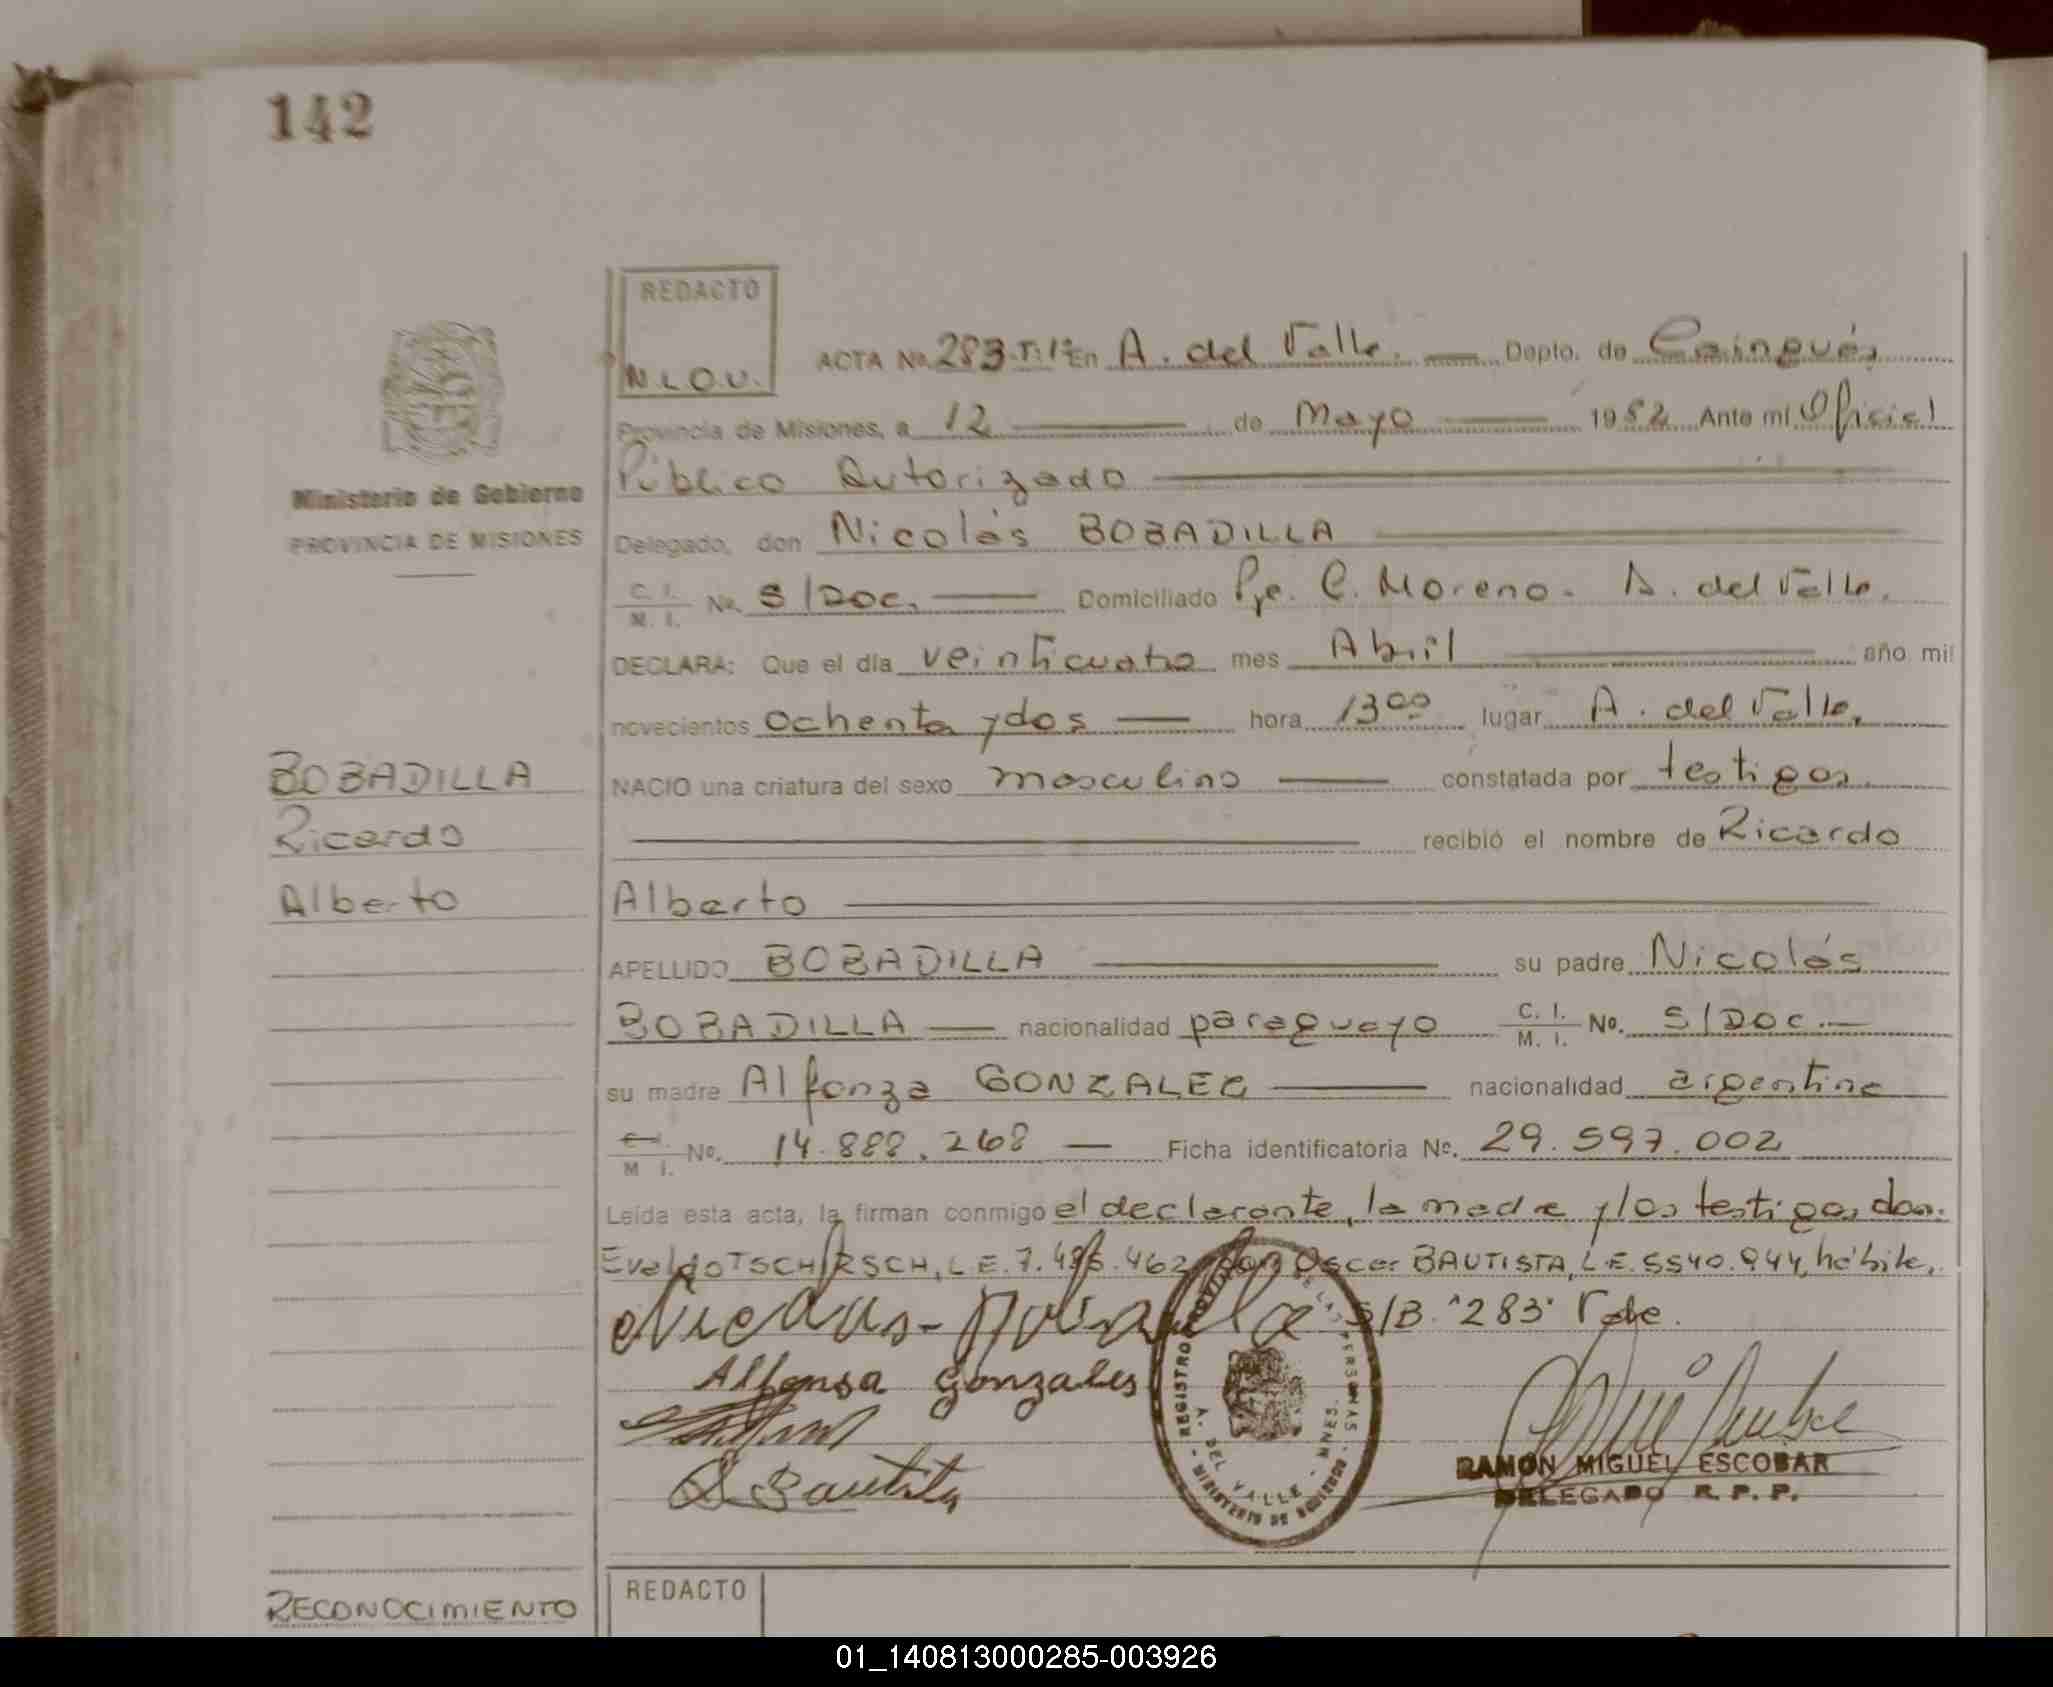 142
REDACTO
N.L.O.V.
ACTA No. 283-T:1º En A. del Valle. Depto. de Cainguás
Provincia de Misiones, a 12 de Mayo 1982 Ante mí Oficial
Público Autorizado
Ministerio de Gobierno
PROVINCIA DE MISIONES
Delegado, don Nicolás BOBADILLA
C. I. / M. I. No. S/Doc. Domiciliado Pje. C. Moreno. A. del Valle.
DECLARA: Que el día veinticuatro mes Abril año mil
novecientos ochenta y dos hora 13ºº lugar A. del Valle.
NACIO una criatura del sexo masculino constatada por testigos.
recibió el nombre de Ricardo
Alberto
BOBADILLA
Ricardo
Alberto
APELLIDO BOBADILLA su padre Nicolás
BOBADILLA nacionalidad paraguayo C. I. / M. I. No. S/Doc.
su madre Alfonza GONZALEZ nacionalidad argentina
M I. No. 14.888.268 Ficha identificatoria No. 29.597.002
Leída esta acta, la firman conmigo el declarante, la madre y los testigos, don.
Evaldo TSCHIRSCH, L.E. 7.486.462 don Oscar BAUTISTA, L.E. 5540.944, hábile,.
Nicolas Bobadilla S/B. "283" Vale.
Alfonsa Gonzales
O Bautista
REGISTRO PROVINCIAL DE LAS PERSONAS
A. DEL VALLE - MNES.
- MINISTERIO DE GOBIERNO -
RAMON MIGUEL ESCOBAR
DELEGADO R. P. P.
RECONOCIMIENTO
REDACTO
01_140813000285-003926